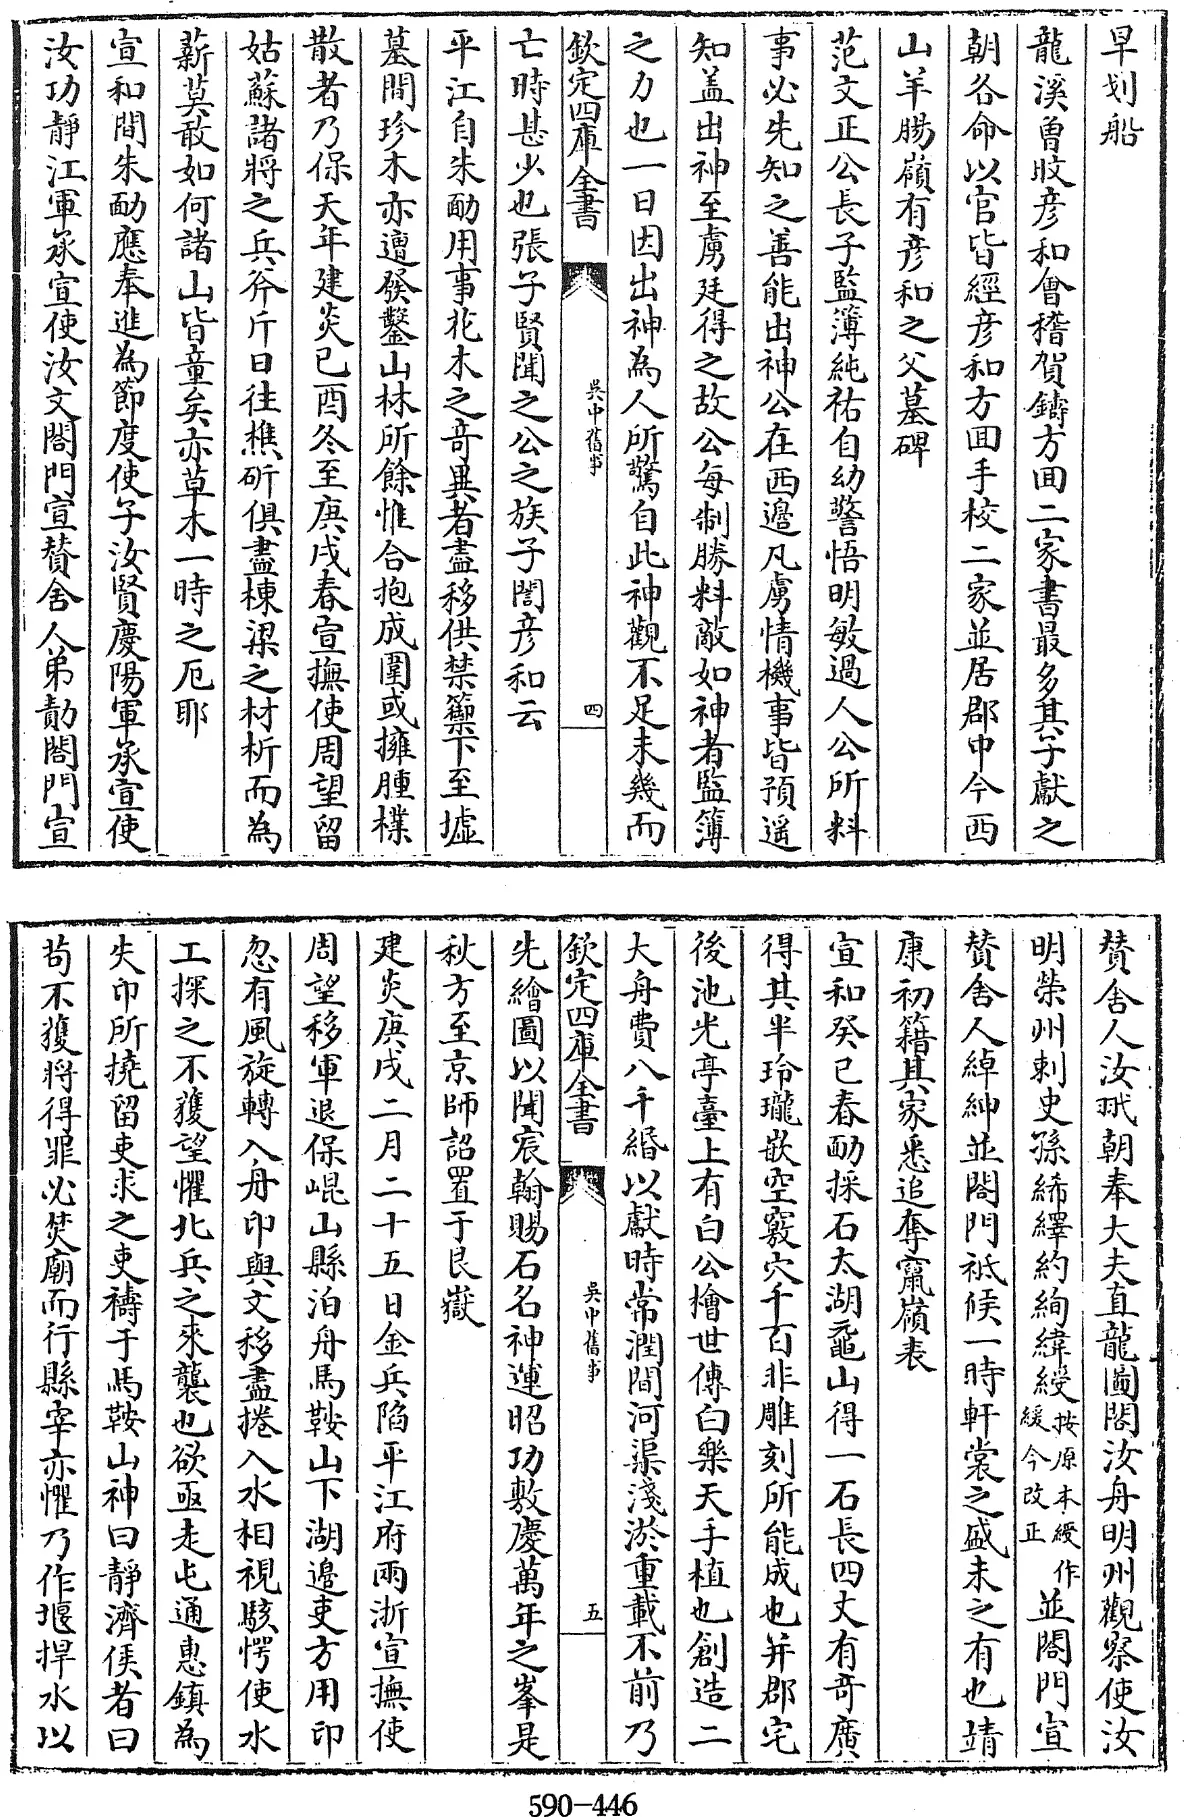 早划船
龍溪曾旼彦和會稽賀鑄方回二家書最多其子獻之
朝各命以官皆經彦和方回手校二家並居郡中今西
山羊腸嶺有彦和之父墓碑
范文正公長子監簿純祐自幼警悟明敏過人公所料
事必先知之善能出神公在西邊凡虜情機事皆預遥
知盖出神至虜廷得之故公每制勝料敵如神者監簿
之力也一日因出神為人所驚自此神觀不足未幾而
欽定四庫全書
吳中舊事
四
亡時甚少也張子賢聞之公之族子誾彦和云
平江自朱勔用事花木之竒異者盡移供禁籞下至墟
墓間珍木亦遭發鑿山林所餘惟合抱成圍或擁腫樸
散者乃保天年建炎已酉冬至庚戌春宣撫使周望留
姑蘇諸將之兵斧斤日往樵斫俱盡棟梁之材析而為
薪莫敢如何諸山皆童矣亦草木一時之厄耶
宣和間朱勔應奉進為節度使子汝賢慶陽軍承宣使
汝功靜江軍承宣使汝文閤門宣賛舍人弟勣閤門宣
賛舍人汝翊朝奉大夫直龍圖閣汝舟明州觀察使汝
明榮州刺史孫絺繹約絢緯綬按原本綬作緩今改正並閤門宣
賛舍人綽紳並閤門祗候一時軒裳之盛未之有也靖
康初籍其家悉追奪竄嶺表
宣和癸巳春勔採石太湖黿山得一石長四丈有竒廣
得其半玲瓏嵌空竅穴千百非雕刻所能成也并郡宅
後池光亭臺上有白公檜世傳白樂天手植也創造二
大舟費八千緡以獻時常潤間河渠淺淤重載不前乃
欽定四庫全書
吳中舊事
五
先繪圖以聞宸翰賜石名神運昭功敷慶萬年之峯是
秋方至京師詔置于艮嶽
建炎庚戌二月二十五日金兵陷平江府兩浙宣撫使
周望移軍退保崐山縣泊舟馬鞍山下湖邊吏方用印
忽有風旋轉入舟印與文移盡捲入水相視駭愕使水
工探之不獲望懼北兵之來襲也欲亟走屯通惠鎮為
失印所撓留吏求之吏禱于馬鞍山神曰靜濟侯者曰
苟不獲將得罪必焚廟而行縣宰亦懼乃作堰捍水以
590-446